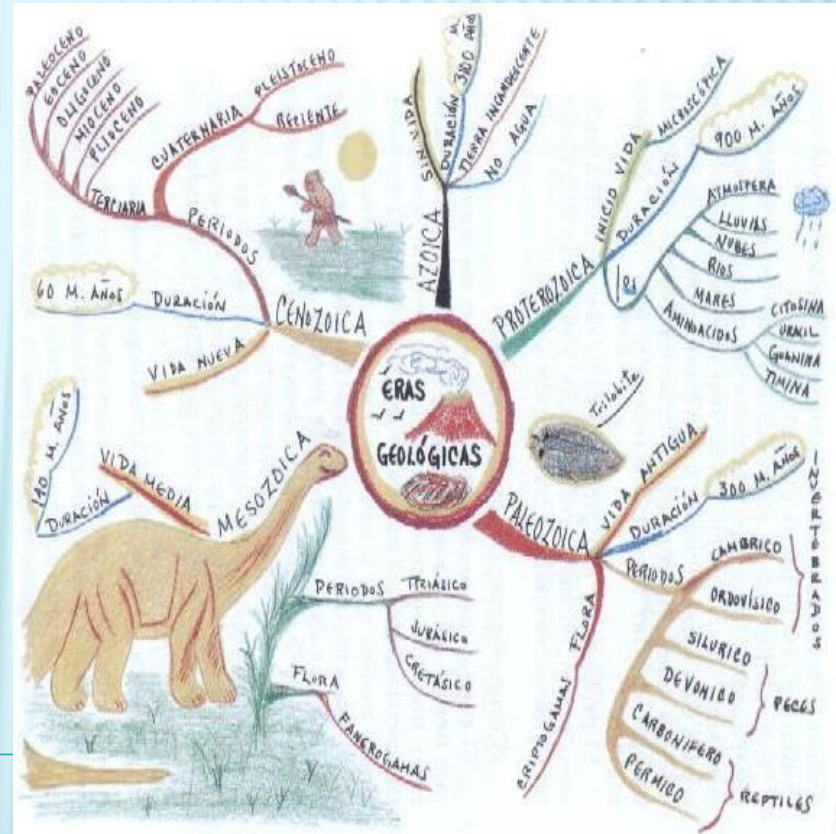 ERAS
GEOLÓGICAS
AZOICA
SIN VIDA
DURACIÓN
3800 M. AÑOS
TIERRA INCANDESCENTE
NO AGUA
PROTEROZOICA
INICIO VIDA
MICROSCÓPICA
DURACIÓN
900 M. AÑOS
1os
ATMOSFERA
LLUVIAS
NUBES
RIOS
MARES
AMINOACIDOS
CITOSINA
URACIL
GUANINA
TIMINA
Trilobite
PALEOZOICA
VIDA ANTIGUA
DURACIÓN
300 M. AÑOS
PERIODOS
CAMBRICO
ORDOVÍSICO
INVERTEBRADOS
SILURICO
DEVONICO
PECES
CARBONIFERO
PERMICO
REPTILES
FLORA
CRIPTOGAMAS
MESOZOICA
VIDA MEDIA
DURACIÓN
140 M. AÑOS
PERIODOS
TRIÁSICO
JURÁSICO
CRETÁSICO
FLORA
FANEROGAMAS
CENOZOICA
VIDA NUEVA
DURACIÓN
60 M. AÑOS
PERIODOS
TERCIARIA
PALEOCENO
EOCENO
OLIGOCENO
MIOCENO
PLIOCENO
CUATERNARIA
PLEISTOCENO
RECIENTE